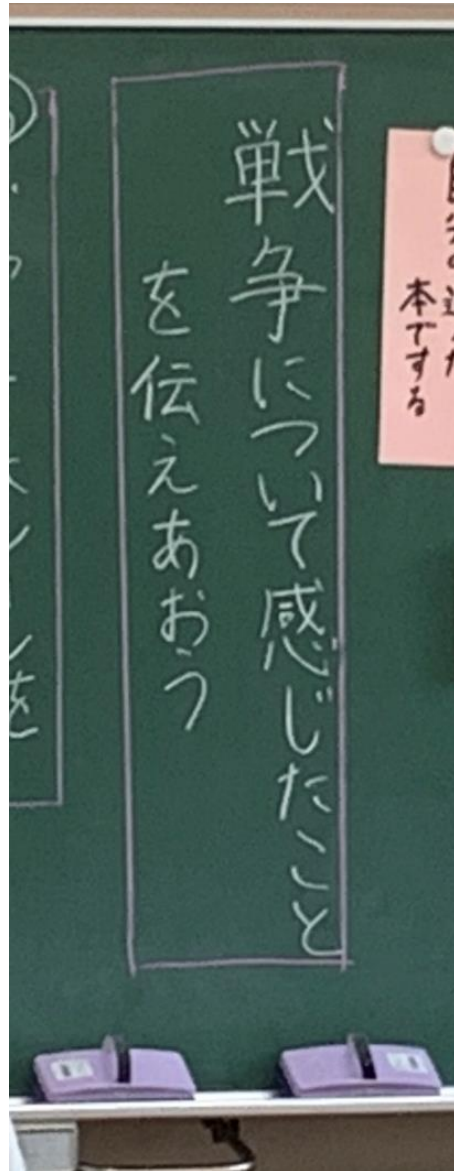 本でする
戦争について感じたこと
を伝えあおう